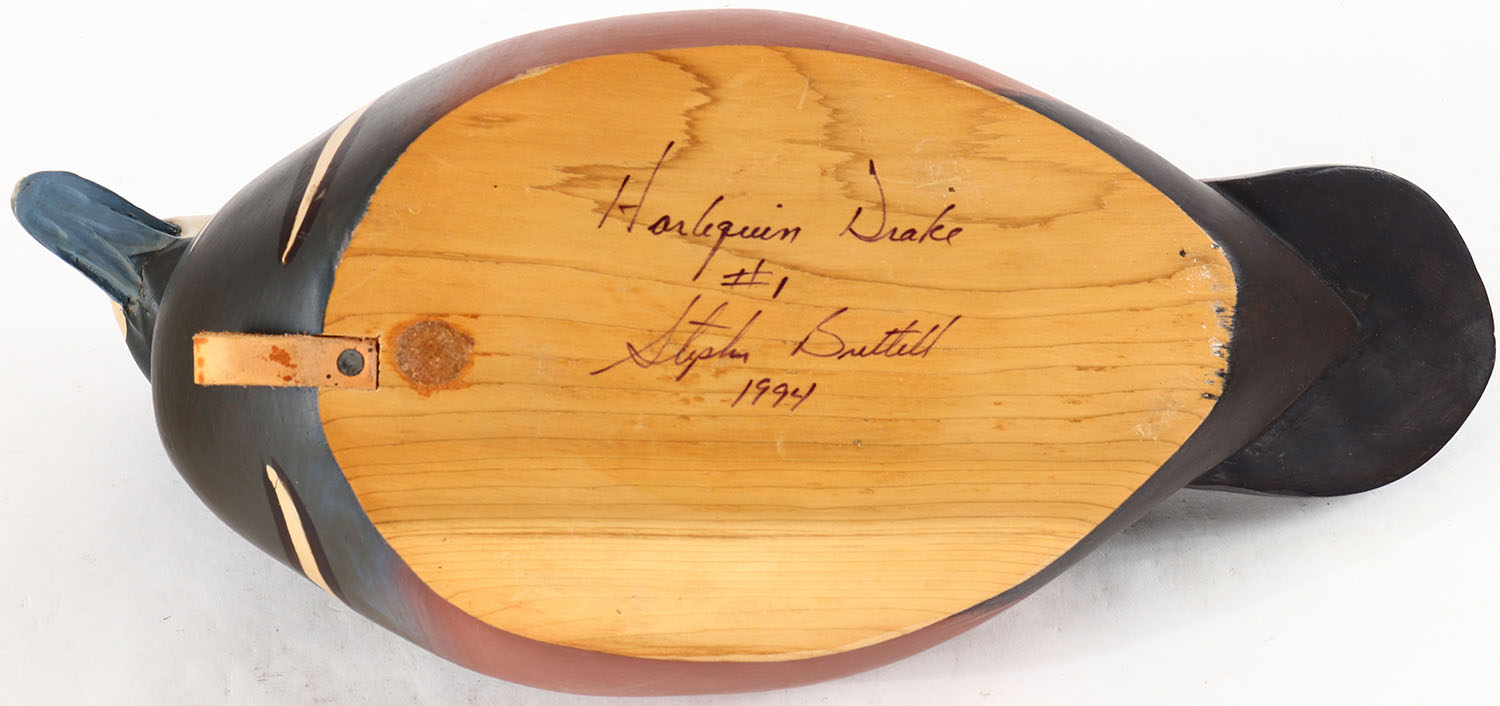 Harlequin Drake
#1
Stephen Brettell
1994